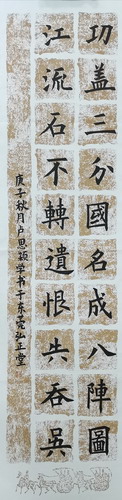 功盖三分國名成八陣圖
江流石不轉遺恨失吞吳
庚子秋月卢思颖学书于东莞弘正堂